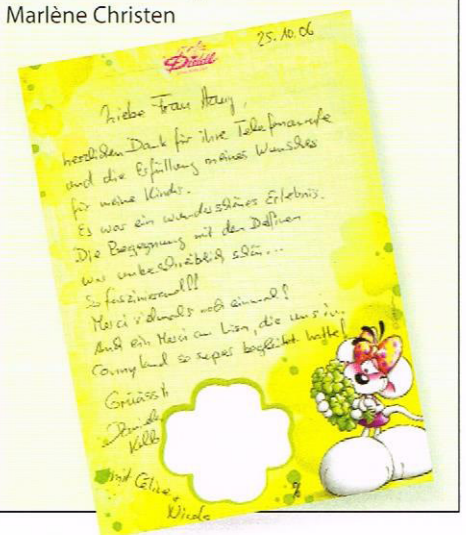 Marlène Christen
25.10.06
Diddl
Liebe Frau
herzlichen Dank für ihre Telefonanrufe
und die Erfüllung meines Wunsches
für meine Kinder.
Es war ein wunderschönes Erlebnis.
Die Begegnung mit den Delfinen
war unbeschreiblich schön...
So faszinierend!!
Merci vielmals noch einmal!
Auch ein Merci an Lisa, die uns im
Connyland so super begleitet hatte!
Grüässli
Kälb
mit Céline +
Nicola